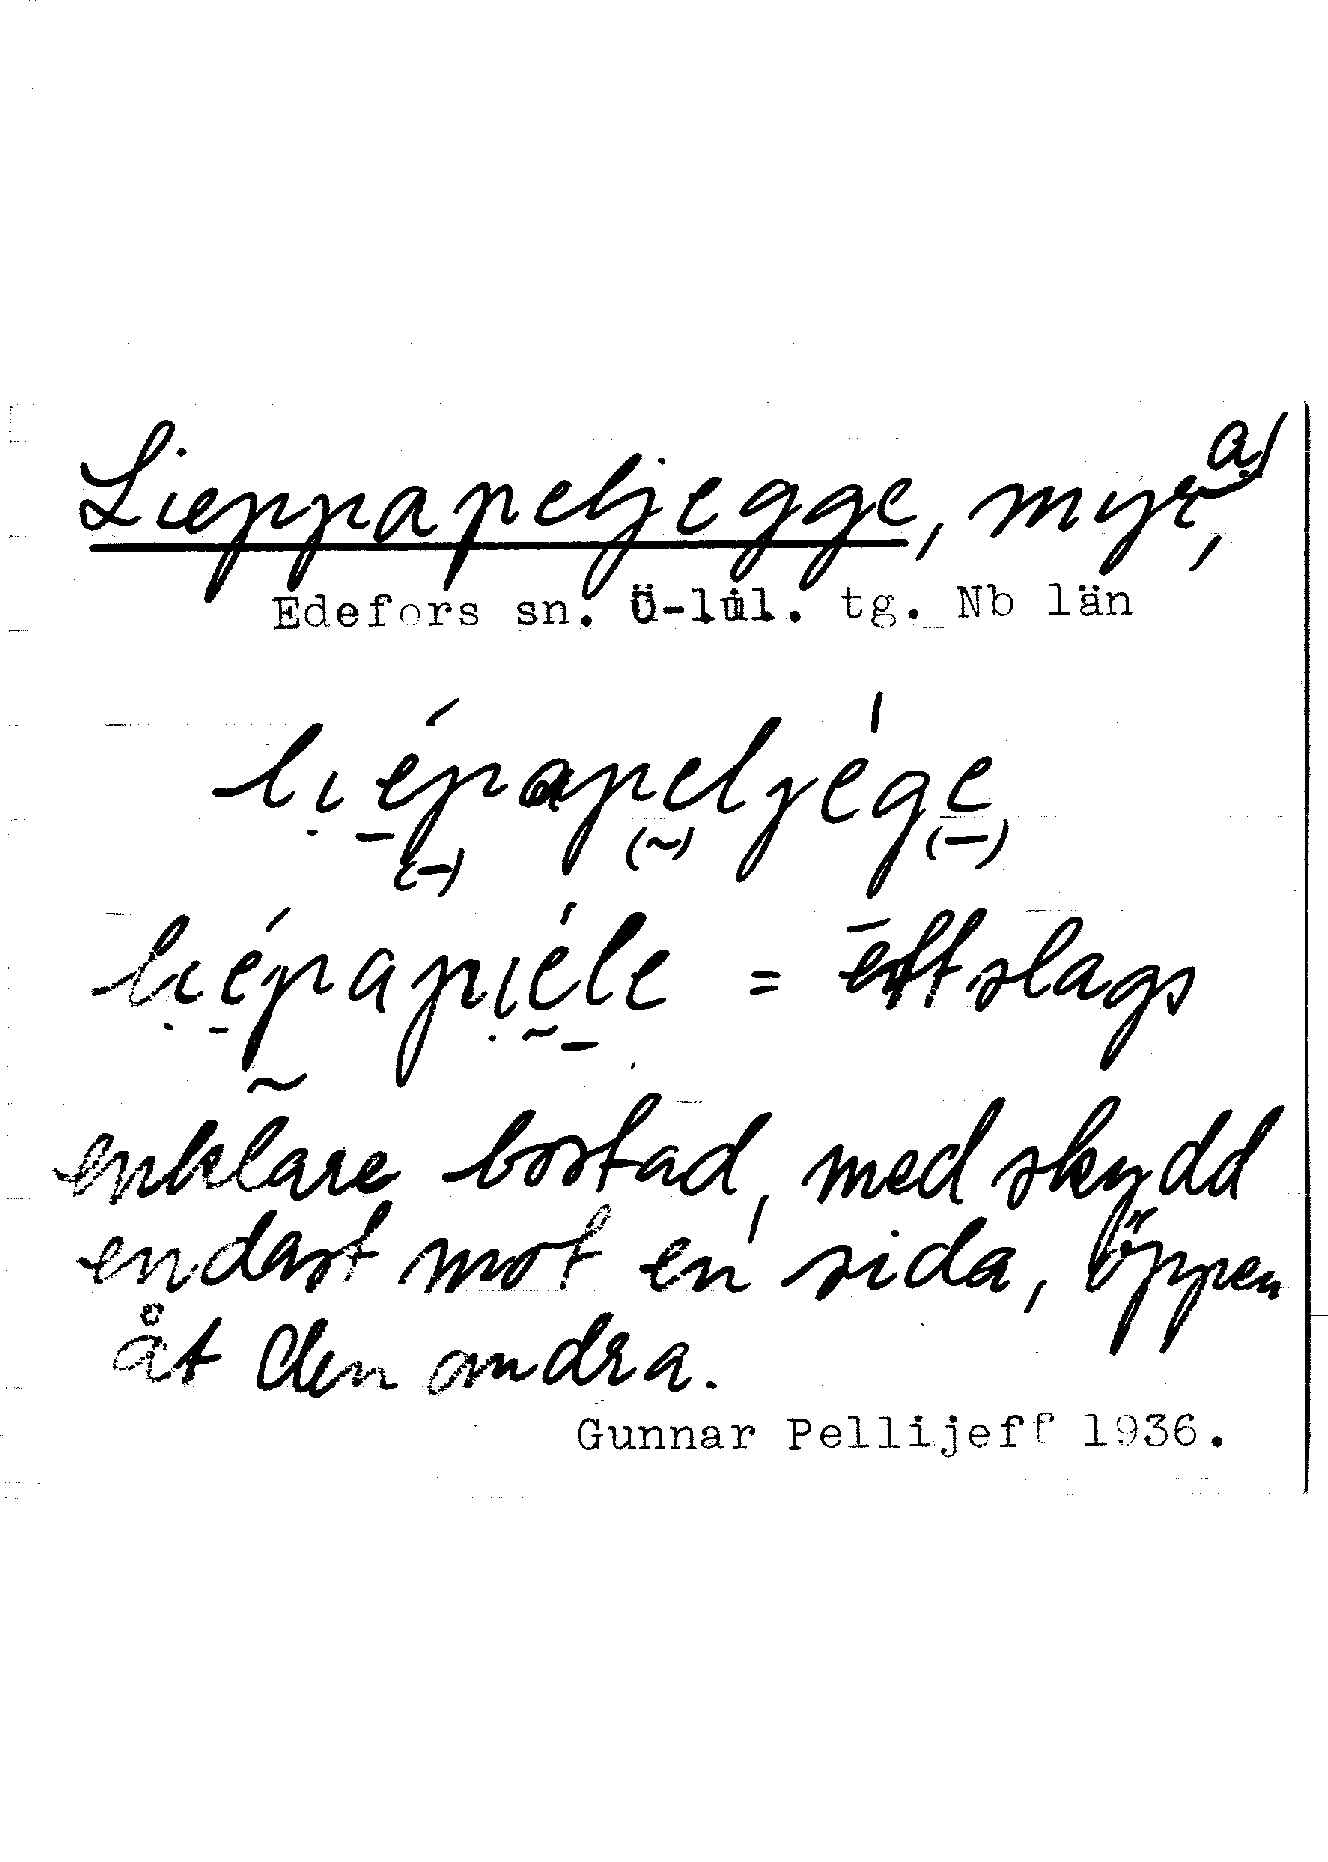 Lieppapeljegge, myra,
Edefors sn. Ö-lul. tg. Nb län
liépapeljége
liépapiéle = ett slags
enklare bostad, med skydd
endast mot en sida, öppen
åt den andra.
Gunnar Pellijeff 1936.